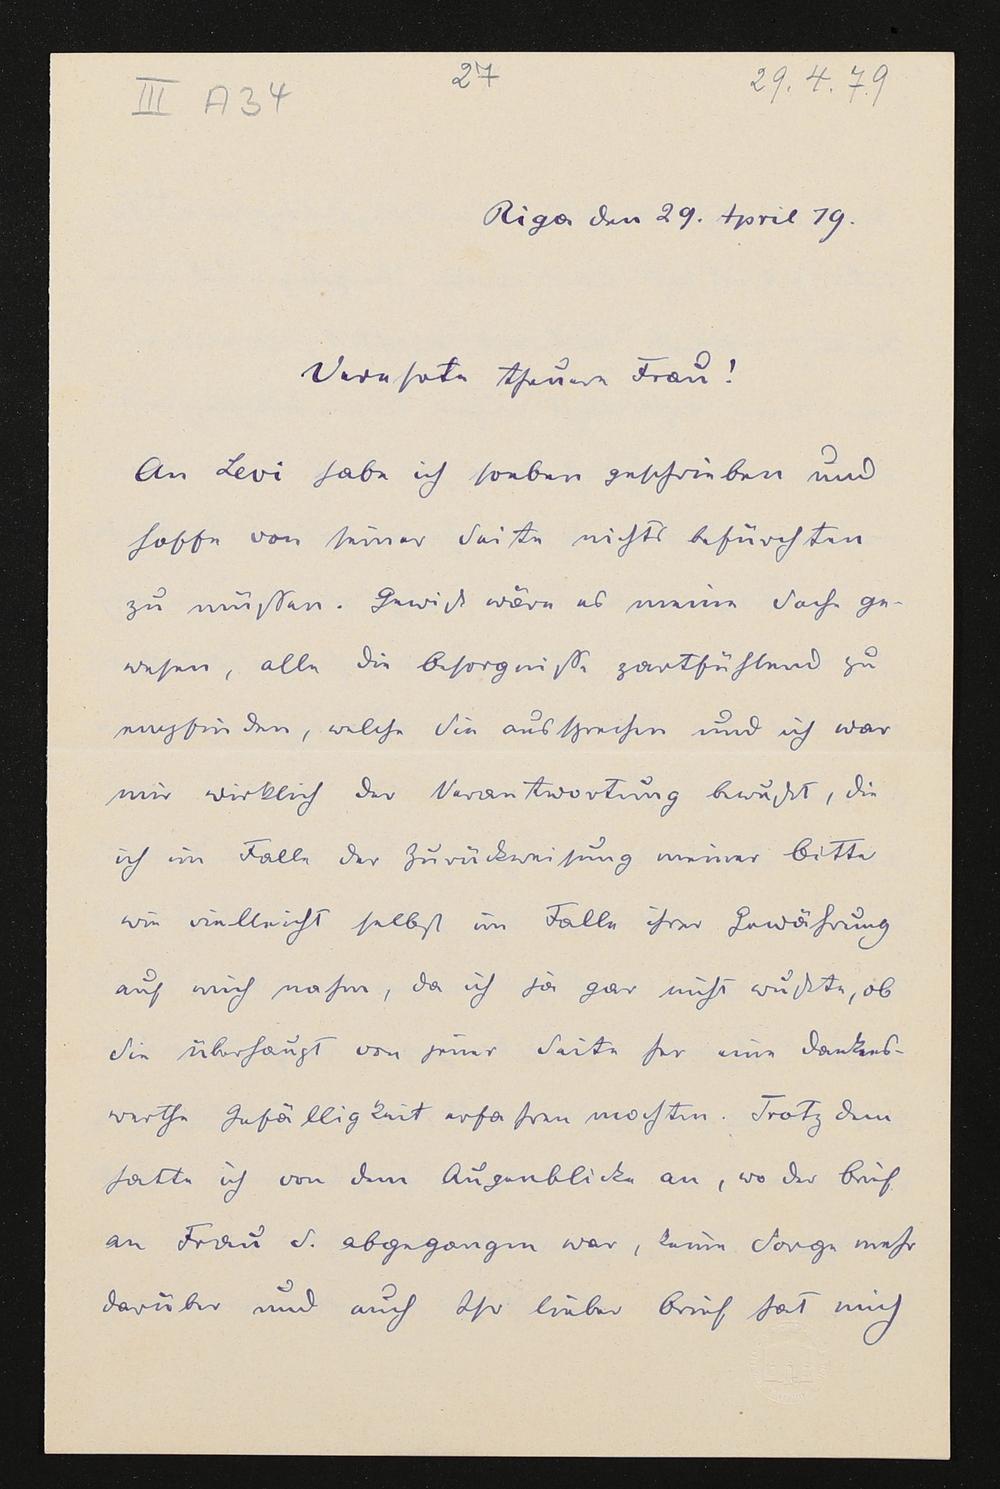 III A34
27
29.4.79
Riga den 29. April 79.
Verehrte theuere Frau!
An Levi habe ich soeben geschrieben und
hoffe von seiner Seite nichts befürchten
zu müssen. Gewiß wäre es meine Sache ge-
wesen, alle die Besorgnisse zartfühlend zu
empfinden, welche Sie aussprechen und ich war
mir wirklich der Verantwortung bewußt, die
ich im Falle der Zurückweisung meiner Bitte
wie vielleicht selbst im Falle ihrer Gewährung
auf mich nahm, da ich ja gar nicht wußte, ob
Sie überhaupt von jener Seite her eine dankens-
werthe Gefälligkeit erfahren mochten. Trotz dem
hatte ich von dem Augenblicke an, wo der Brief
an Frau S. abgegangen war, keine Sorge mehr
darüber und auch Ihr lieber Brief hat mich